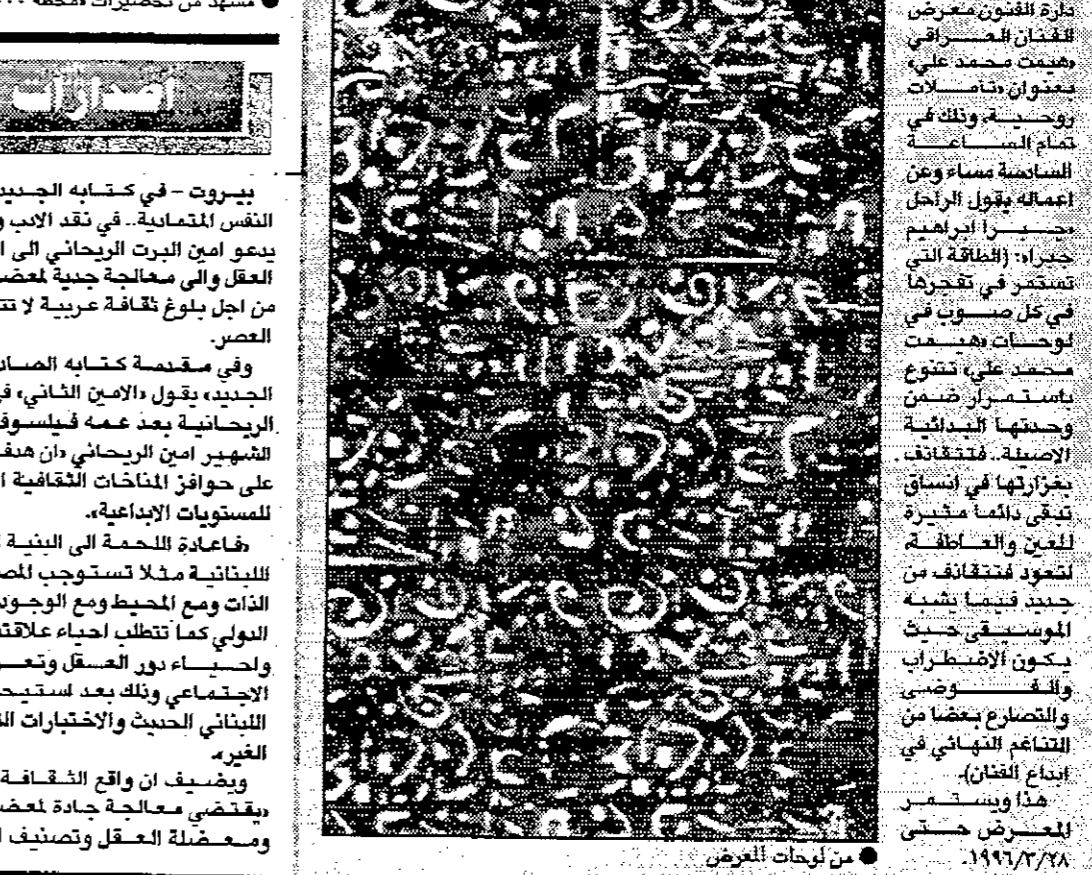 دارة الفنون معرض
للفنان العـــراقي
«هيمت محمد علي»
بعنوان «تأمـــلات
روحـــيـــة» وذلك في
تمام الســـاعـــة
السادسة مساء وعن
اعماله يقول الراحل
«جـبـــرا ابراهيم
جبرا»: (الطاقة التي
تستمر في تفجرها
في كل صـــوب في
لوحـــات «هيـــمت
محمد علي» تتنوع
باستـمـرار ضـمن
وحدتها البدائية
الاصيلة.. فتتقاذف
بغزارتها في انساق
تبقى دائما مثيرة
للعين والعـــاطفـــة
لتعود فتتقاذف من
جديد فيما يشبه
الموسـيـقى حـيث
يكون الاضطراب
والـفـــوضى
والتصارع بعضا من
التناغم النهائي في
ابداع الفنان).
هذا ويستـــمـــر
المعـــرض حـــتى
١٩٩٦/٣/٢٨.
● من لوحات المعرض
● مشهد من تحضيرات «محطة ٠٠٠
اصدارات
بيـروت – في كـتـابه الجـديد
النفس المتمادية.. في نقد الادب و
يدعو امين البرت الريحاني الى ا
العقل والى معالجة جدية لمعض
من اجل بلوغ ثقافة عربية لا تت
العصر.
وفي مـقـدمـة كـتـابه الصـاد
الجديد» يقول «الامين الثاني» في
الريحـانيـة بعد عـمه فـيلسـوف
الشهير امين الريحاني «ان هدف
على حوافز المناخات الثقافية ا
للمستويات الابداعية».
«فـاعـادة اللحـمة الى البنيـة ا
اللبنانيـة مـثـلا تسـتـوجب المص
الذات ومع المحيط ومع الوجود
الدولي كما تتطلب احياء علاقت
واحـــيـــاء دور العـــقل وتعـــر
الاجـتـمـاعي وذلك بعد اسـتـيـح
اللبناني الحديث والاختبارات ال
الغير».
ويضـيف ان واقع الثـقـافـة
«يقـتـضي مـعـالجـة جـادة لمعض
ومـعـضلة العـقل وتصنيف ا